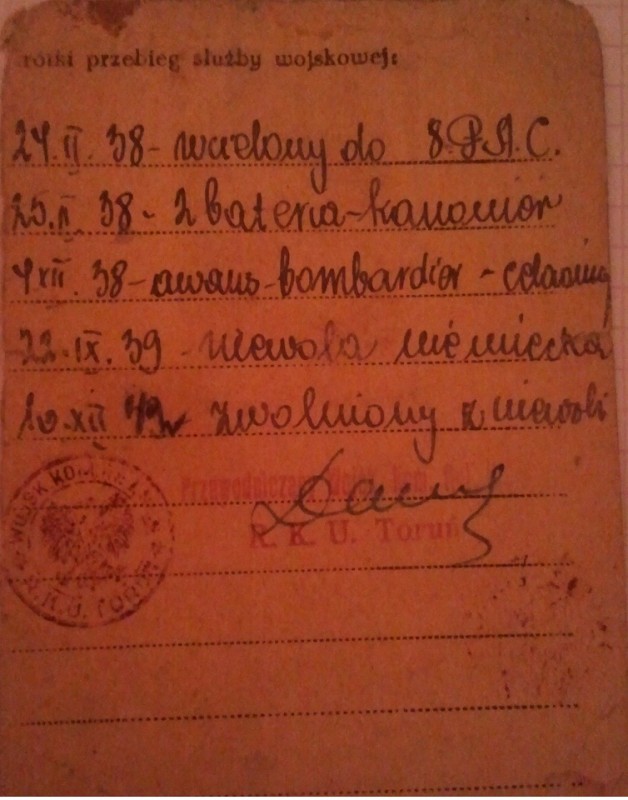 rótki przebieg służby wojskowej:
24.II. 38 - wcielony do 8.P.A.C.
25.II. 38 - 2 bateria - kanonier
38 - awans - bombardier - celowni
22.IX. 39 - niewola niemiecka
10.XII zwolniony z niewoli
Przewodniczący
R. K. U. Toruń
WOJSK KOM
R.K.U. TORUŃ